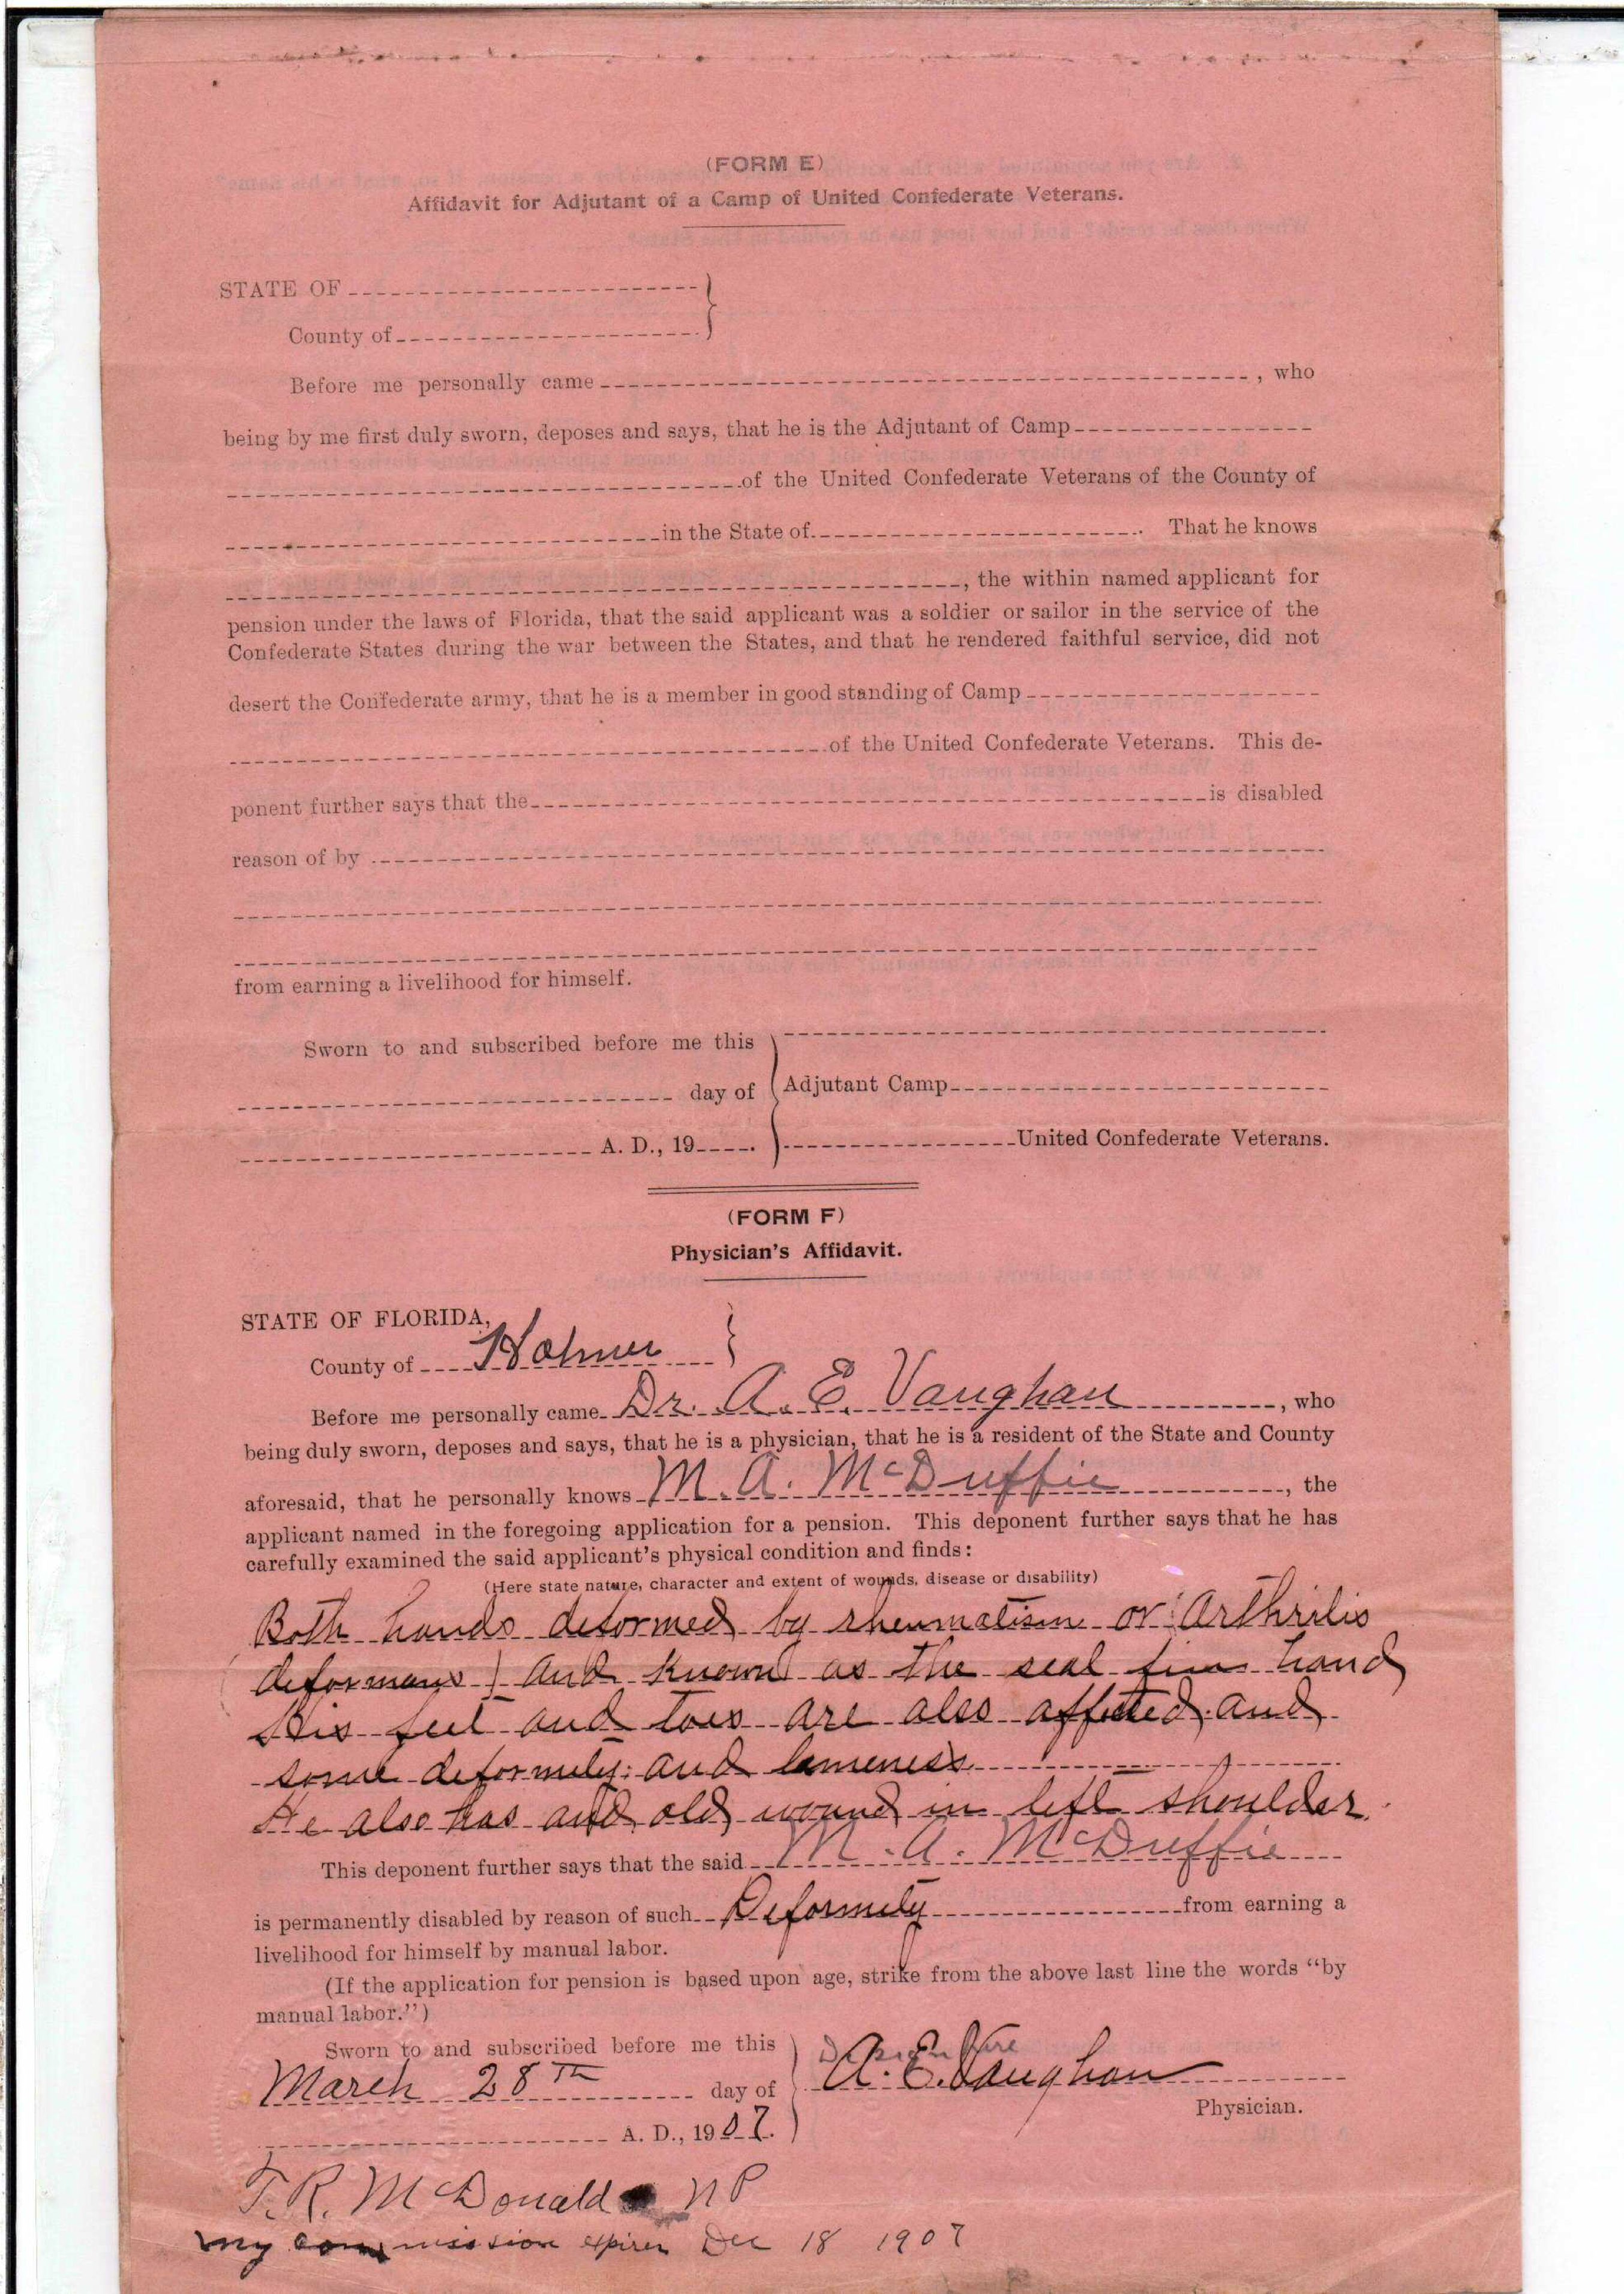 (FORM E)
Affidavit for Adjutant of a Camp of United Confederate Veterans.
STATE OF
County of
Before me personally came , who
being by me first duly sworn, deposes and says, that he is the Adjutant of Camp
of the United Confederate Veterans of the County of
in the State of . That he knows
, the within named applicant for
pension under the laws of Florida, that the said applicant was a soldier or sailor in the service of the
Confederate States during the war between the States, and that he rendered faithful service, did not
desert the Confederate army, that he is a member in good standing of Camp
of the United Confederate Veterans. This de-
ponent further says that the is disabled
reason of by
from earning a livelihood for himself.
Sworn to and subscribed before me this
day of Adjutant Camp
A. D., 19 . United Confederate Veterans.
(FORM F)
Physician's Affidavit.
STATE OF FLORIDA,
County of Holmes
Before me personally came Dr. A. E. Vaughan , who
being duly sworn, deposes and says, that he is a physician, that he is a resident of the State and County
aforesaid, that he personally knows M. A. McDuffie , the
applicant named in the foregoing application for a pension. This deponent further says that he has
carefully examined the said applicant's physical condition and finds:
(Here state nature, character and extent of wounds, disease or disability)
Both hands deformed by rheumatism or (Arthritis
deformans) and known as the seal fin hand
His feet and toes are also affected and
some deformity and lameness.
He also has and old wound in left shoulder.
This deponent further says that the said M. A. McDuffie
is permanently disabled by reason of such Deformity from earning a
livelihood for himself by manual labor.
(If the application for pension is based upon age, strike from the above last line the words "by
manual labor.")
Sworn to and subscribed before me this
March 28th day of A. E. Vaughan
Physician.
A. D., 1907.
T. R. McDonald NP
my commission expires Dec 18 1907